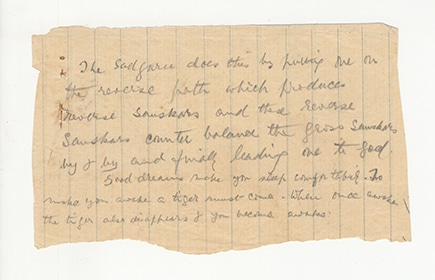 The Sadguru does this by putting one on
the reverse path which produces
reverse Sanskars and the Reverse
Sanskars counter balance the gross Sanskars
by & by and finally leading one to God
Good dreams make you sleep comfortably. To
make you awake a tiger must come. When once awake
the tiger also disappears & you become awake.